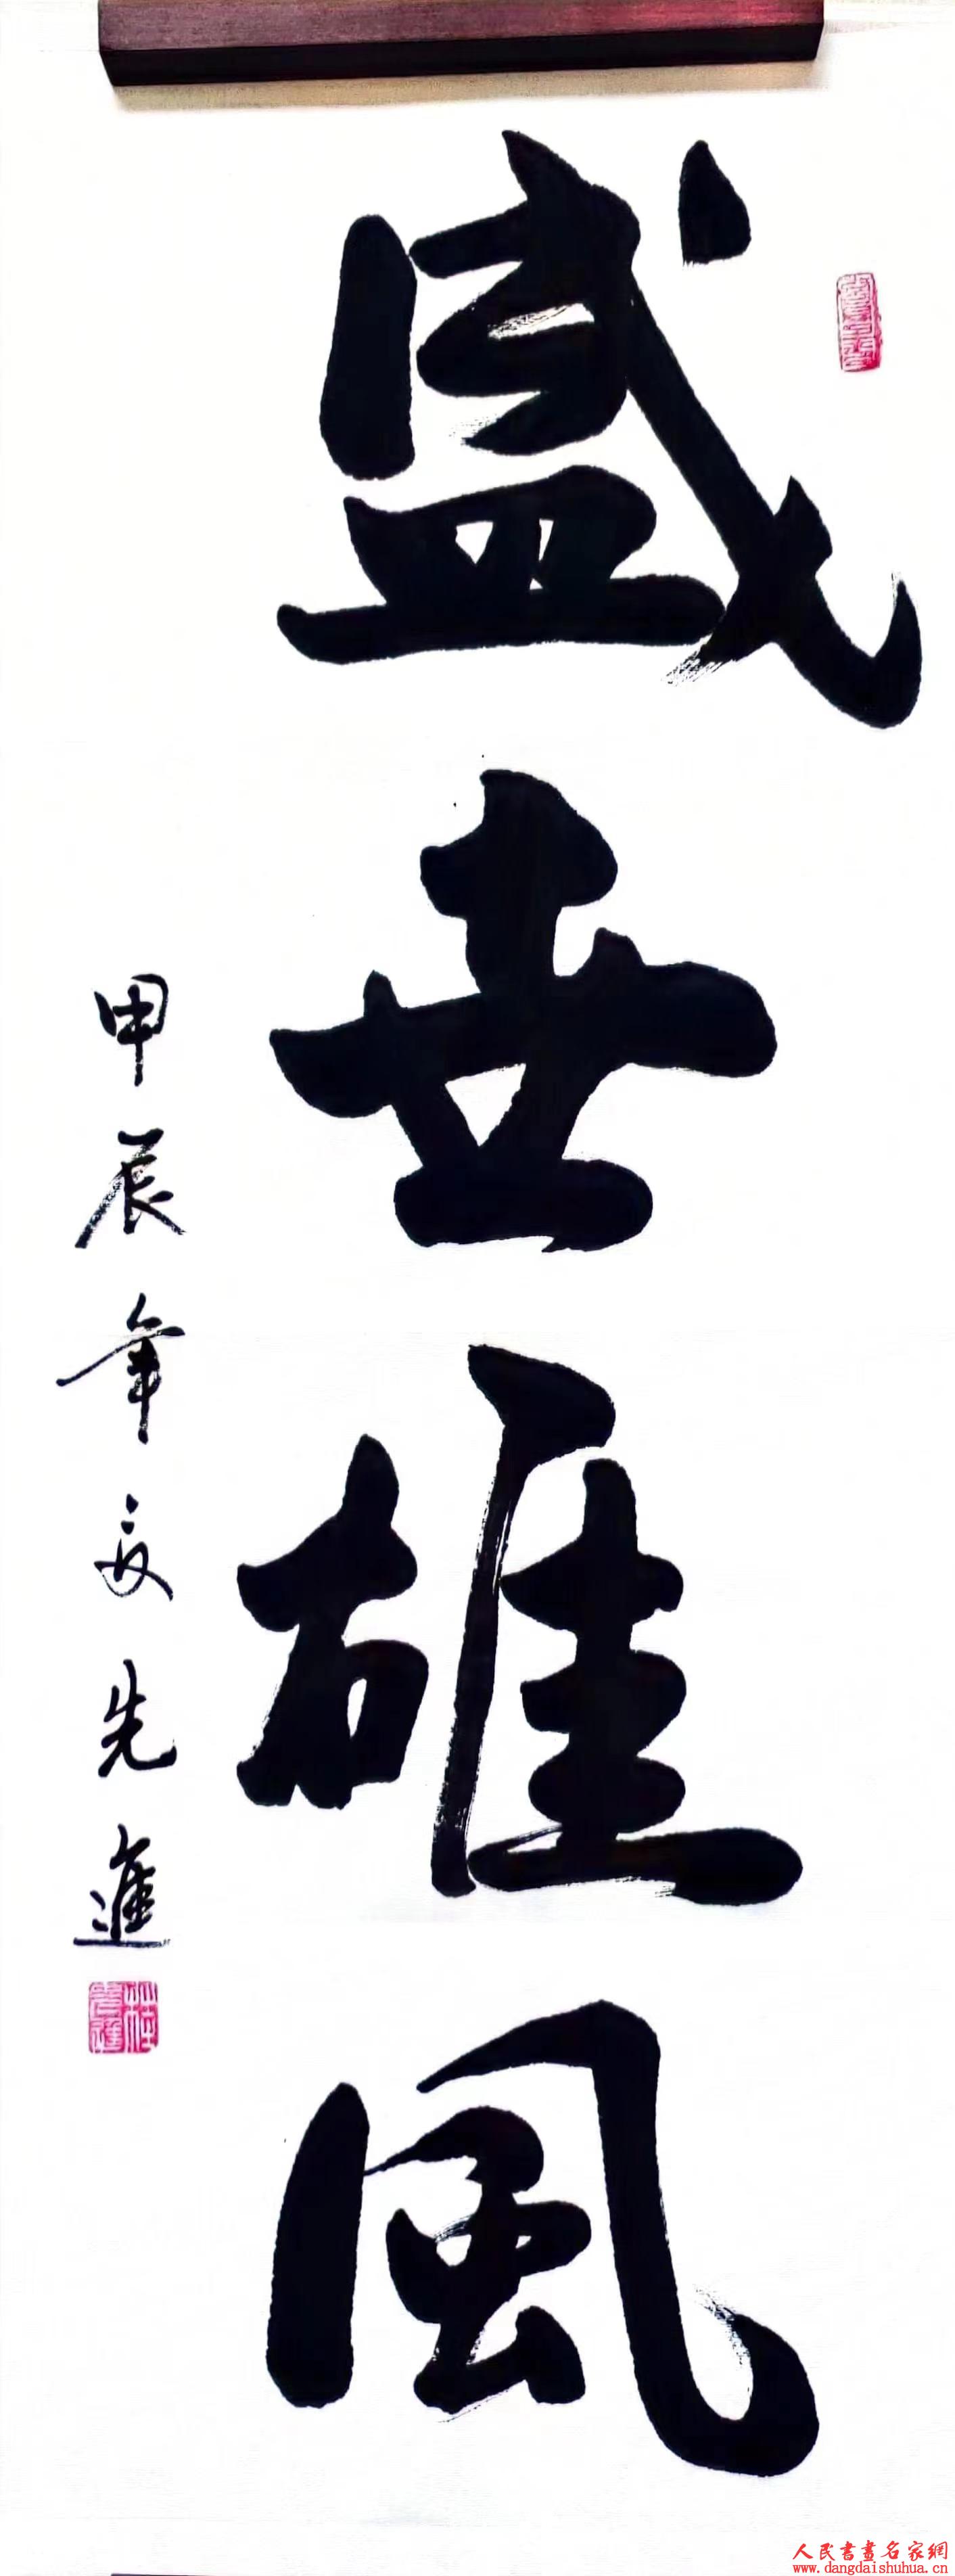 盛世雄风
甲辰年文先進
人民書畫名家網
www.dangdaishuhua.cn